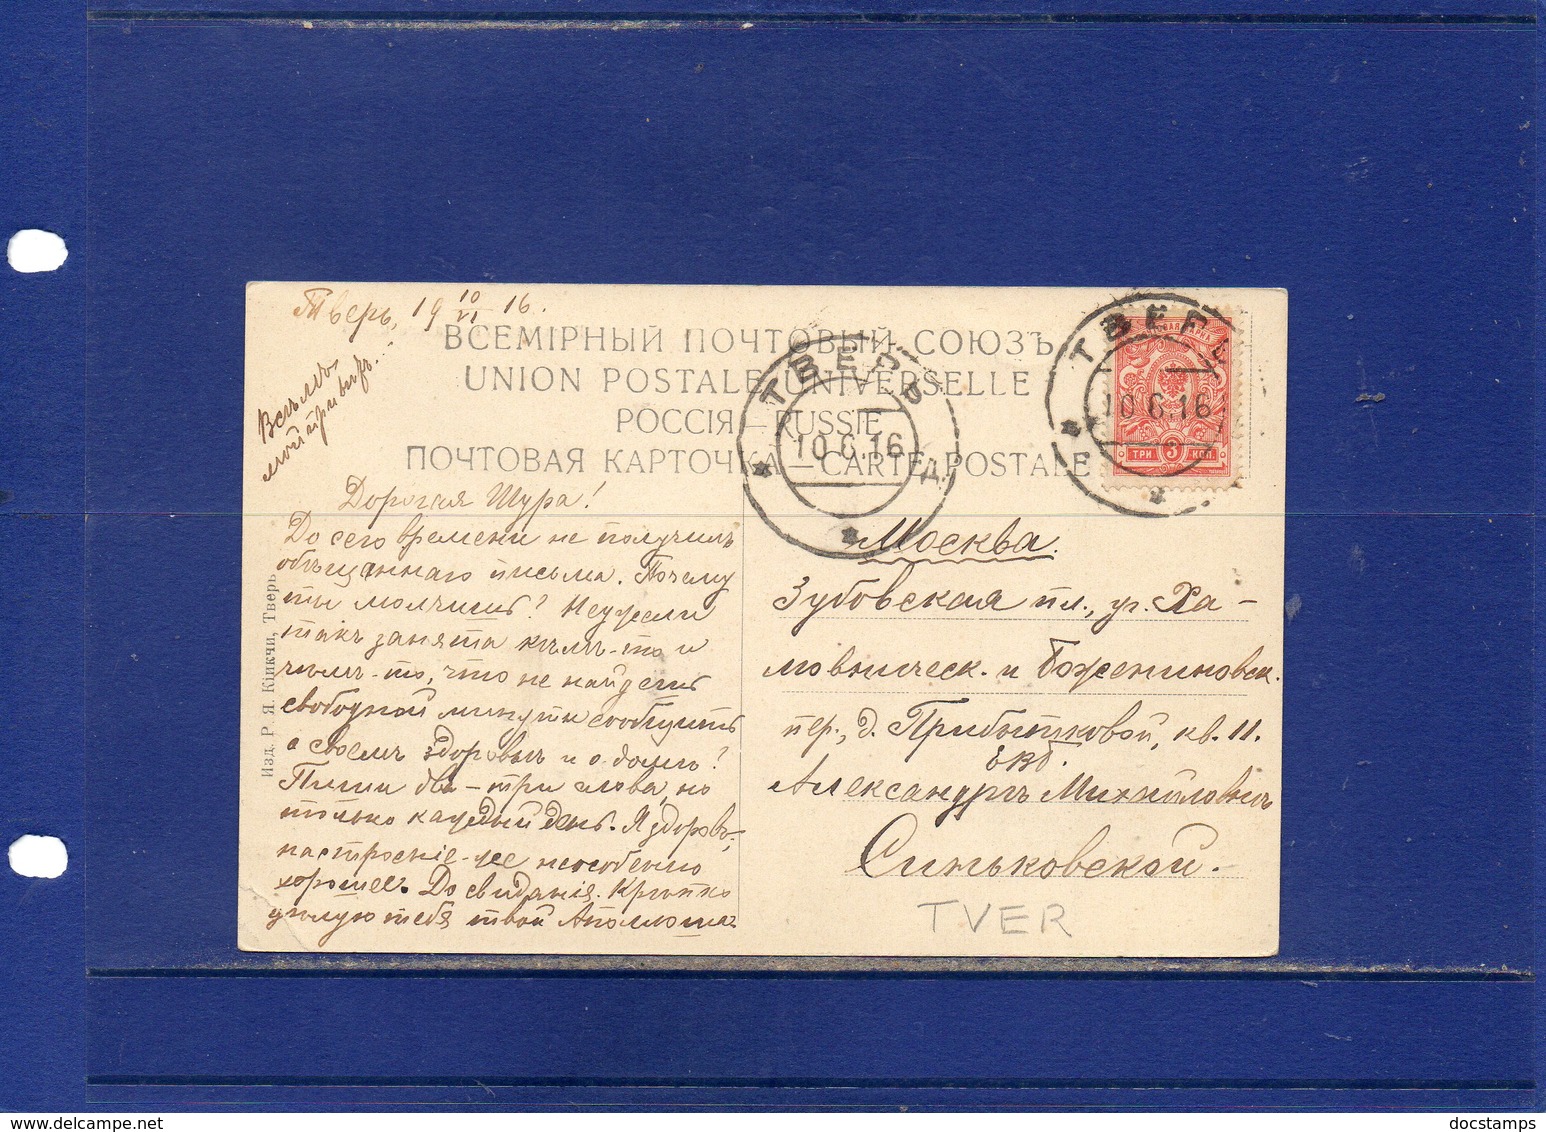 Тверь, 19 10/VI 16.
Всѣмъ
мой привѣтъ...
ВСЕМІРНЫЙ ПОЧТОВЫЙ СОЮЗЪ
UNION POSTALE UNIVERSELLE
РОССІЯ — RUSSIE
ПОЧТОВАЯ КАРТОЧКА — CARTE POSTALE
ТВЕРЬ
10.6.16
Д
ТВЕРЬ
10.6.16
ТРИ 3 КОП
Дорогая Шура!
До сего времени не получилъ
обѣщаннаго письма. Почему
ты молчишь? Неужели
такъ занята кѣмъ-то и
чѣмъ-то, что не найдешь
свободной минуты сообщить
о своемъ здоровьи и о домѣ?
Пиши два-три слова, но
только каждый день. Я здоровъ,
настроеніе-же неособенно
хорошее. До свиданія. Крѣпко
цѣлую тебя твой
Изд. Р. Я. Кіикчи, Тверь
Москва.
Зубовская пл., уг. Ха-
мовническ. и Божениновск.
пер., д. Прибытковой, кв. 11.
ЕВБ.
Александрѣ Михайловнѣ
Синьковской.
TVER
docstamps